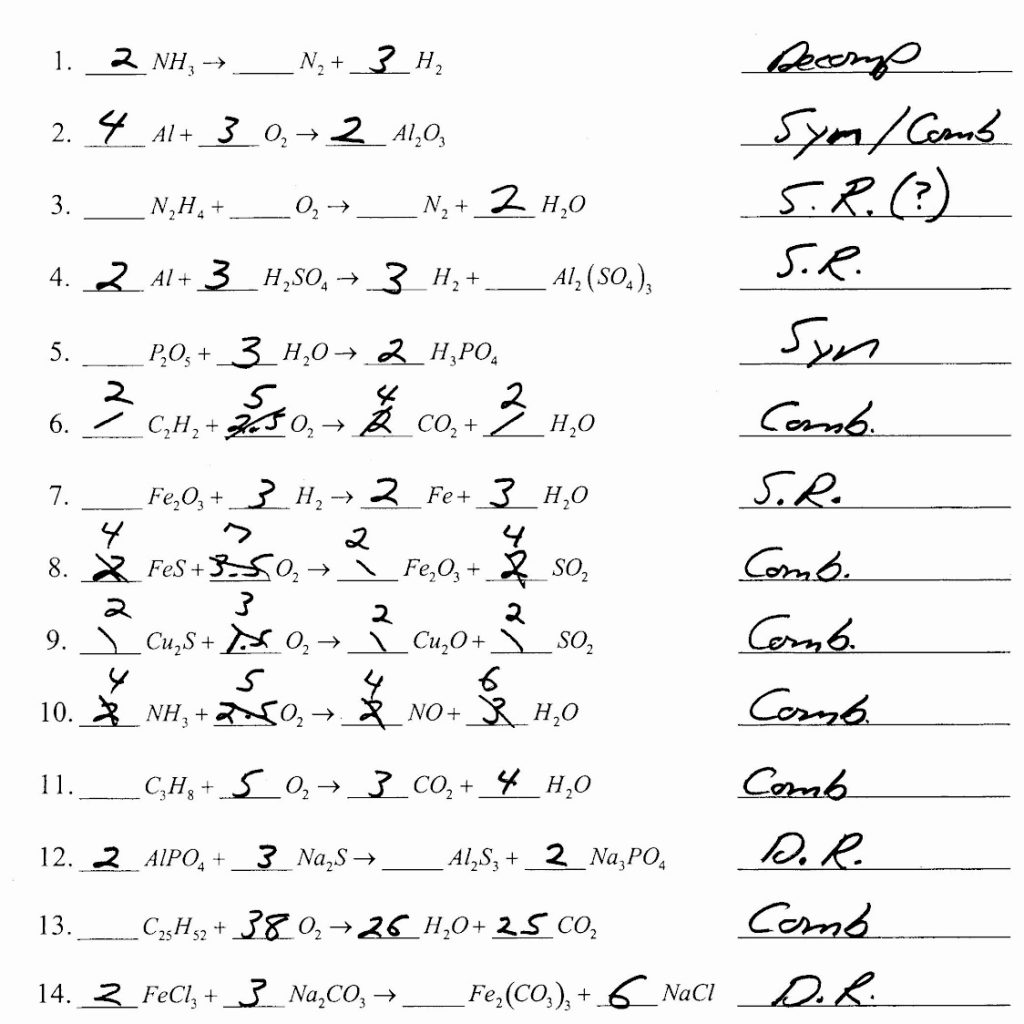 1. 2 NH₃ → ____ N₂ + 3 H₂ Decomp
2. 4 Al + 3 O₂ → 2 Al₂O₃ Sym/Comb
3. ____ N₂H₄ + ____ O₂ → ____ N₂ + 2 H₂O S.R. (?)
4. 2 Al + 3 H₂SO₄ → 3 H₂ + ____ Al₂(SO₄)₃ S.R.
5. ____ P₂O₅ + 3 H₂O → 2 H₃PO₄ Sym
2 5 4 2
6. ____ C₂H₂ + 2.5 O₂ → 2 CO₂ + ____ H₂O Comb.
7. ____ Fe₂O₃ + 3 H₂ → 2 Fe + 3 H₂O S.R.
4 7 2 4
8. 2 FeS + 3.5 O₂ → ____ Fe₂O₃ + 2 SO₂ Comb.
2 3 2 2
9. \ Cu₂S + 1.5 O₂ → \ Cu₂O + \ SO₂ Comb.
4 5 4 6
10. 2 NH₃ + 2.5 O₂ → 2 NO + 3 H₂O Comb.
11. ____ C₃H₈ + 5 O₂ → 3 CO₂ + 4 H₂O Comb
12. 2 AlPO₄ + 3 Na₂S → ____ Al₂S₃ + 2 Na₃PO₄ D.R.
13. ____ C₂₅H₅₂ + 38 O₂ → 26 H₂O + 25 CO₂ Comb
14. 2 FeCl₃ + 3 Na₂CO₃ → ____ Fe₂(CO₃)₃ + 6 NaCl D.R.